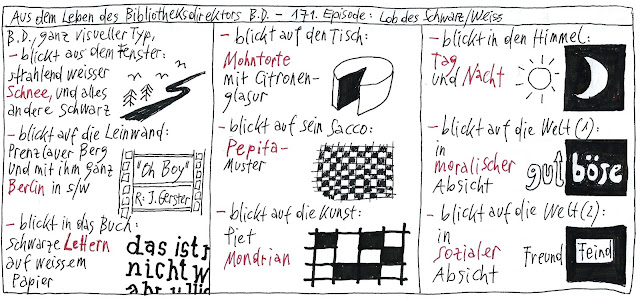 Aus dem Leben des Bibliotheksdirektors B.D. - 171. Episode: Lob des Schwarz/Weiss
B.D., ganz visueller Typ,
- blickt aus dem Fenster:
strahlend weisser
Schnee, und alles
andere schwarz
- blickt auf die Leinwand:
Prenzlauer Berg
und mit ihm ganz
Berlin in s/w
"Oh Boy"
R: J. Gerster
- blickt in das Buch:
schwarze Lettern
auf weissem
Papier
das ist r
nicht w
- blickt auf den Tisch:
Mohntorte
mit Citronen-
glasur
- blickt auf sein Sacco:
Pepita-
Muster
- blickt auf die Kunst:
Piet
Mondrian
- blickt in den Himmel:
Tag
und Nacht
- blickt auf die Welt (1):
in
moralischer
Absicht
gut böse
- blickt auf die Welt (2):
in
sozialer
Absicht
Freund Feind